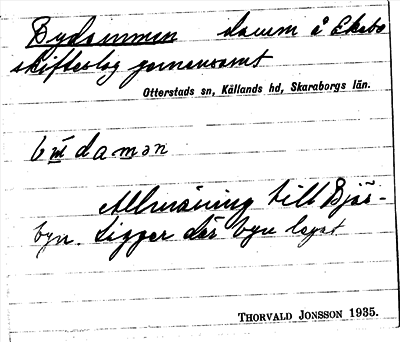 Bydammen damm å Ekebo
skifteslag gemensamt
Otterstads sn, Källands hd, Skaraborgs län.
damən
Allmänning till Bjäs-
byn. Ligger där byn legat
THORVALD JONSSON 1935.